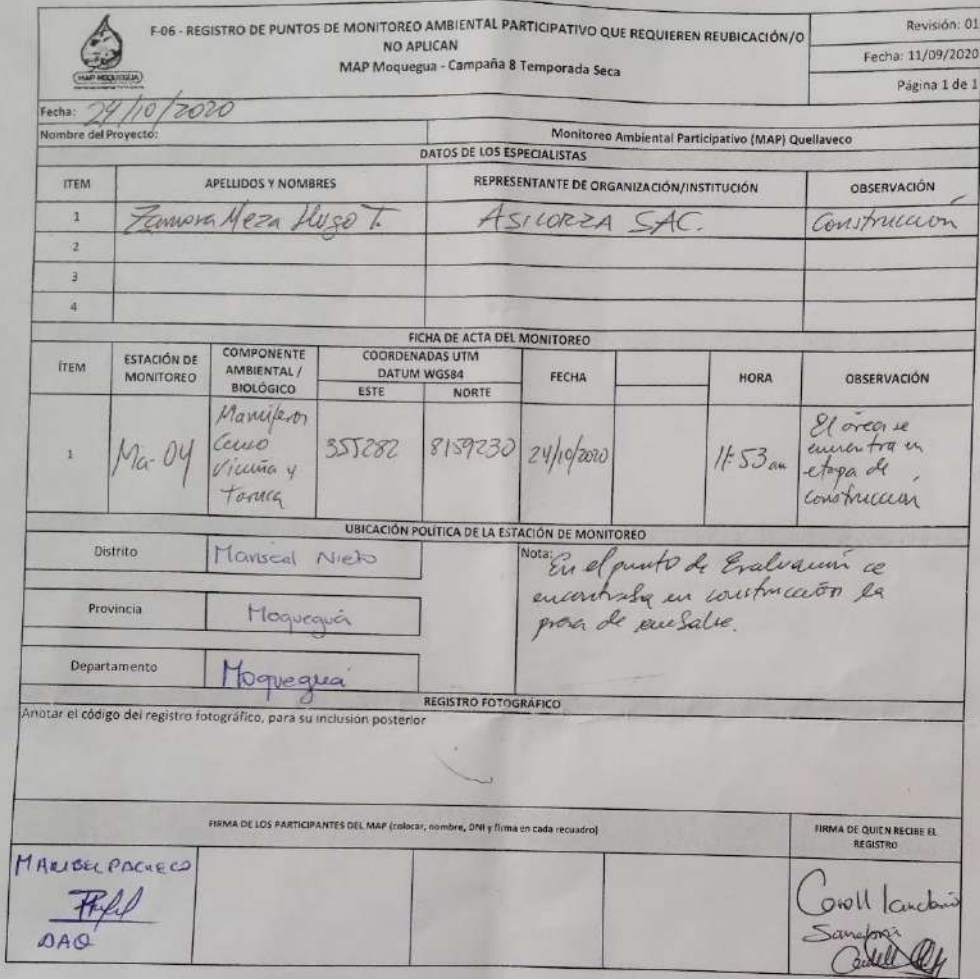 F-06 - REGISTRO DE PUNTOS DE MONITOREO AMBIENTAL PARTICIPATIVO QUE REQUIEREN REUBICACIÓN/O
NO APLICAN
MAP Moquegua - Campaña 8 Temporada Seca
Revisión: 01
Fecha: 11/09/2020
Página 1 de 1
MAP MOQUEGUA
Fecha: 24/10/2020
Nombre del Proyecto: Monitoreo Ambiental Participativo (MAP) Quellaveco
DATOS DE LOS ESPECIALISTAS
ITEM APELLIDOS Y NOMBRES REPRESENTANTE DE ORGANIZACIÓN/INSTITUCIÓN OBSERVACIÓN
1 Zamora Meza Hugo T. ASILORZA SAC. Construcción
2
3
4
FICHA DE ACTA DEL MONITOREO
ÍTEM ESTACIÓN DE MONITOREO COMPONENTE AMBIENTAL / BIOLÓGICO COORDENADAS UTM DATUM WGS84 FECHA HORA OBSERVACIÓN
ESTE NORTE
1 Ma-04 Mamíferos Censo Vicuña y Taruca 355282 8159230 24/10/2020 11:53 am El área se encuentra en etapa de construcción
UBICACIÓN POLÍTICA DE LA ESTACIÓN DE MONITOREO
Distrito Mariscal Nieto
Provincia Moquegua
Departamento Moquegua
Nota: En el punto de Evaluación se
encontraba en construcción la
presa de embalse.
REGISTRO FOTOGRÁFICO
Anotar el código del registro fotográfico, para su inclusión posterior
FIRMA DE LOS PARTICIPANTES DEL MAP (colocar, nombre, DNI y firma en cada recuadro)
FIRMA DE QUIEN RECIBE EL
REGISTRO
MARIBEL PACHECO
DAQ